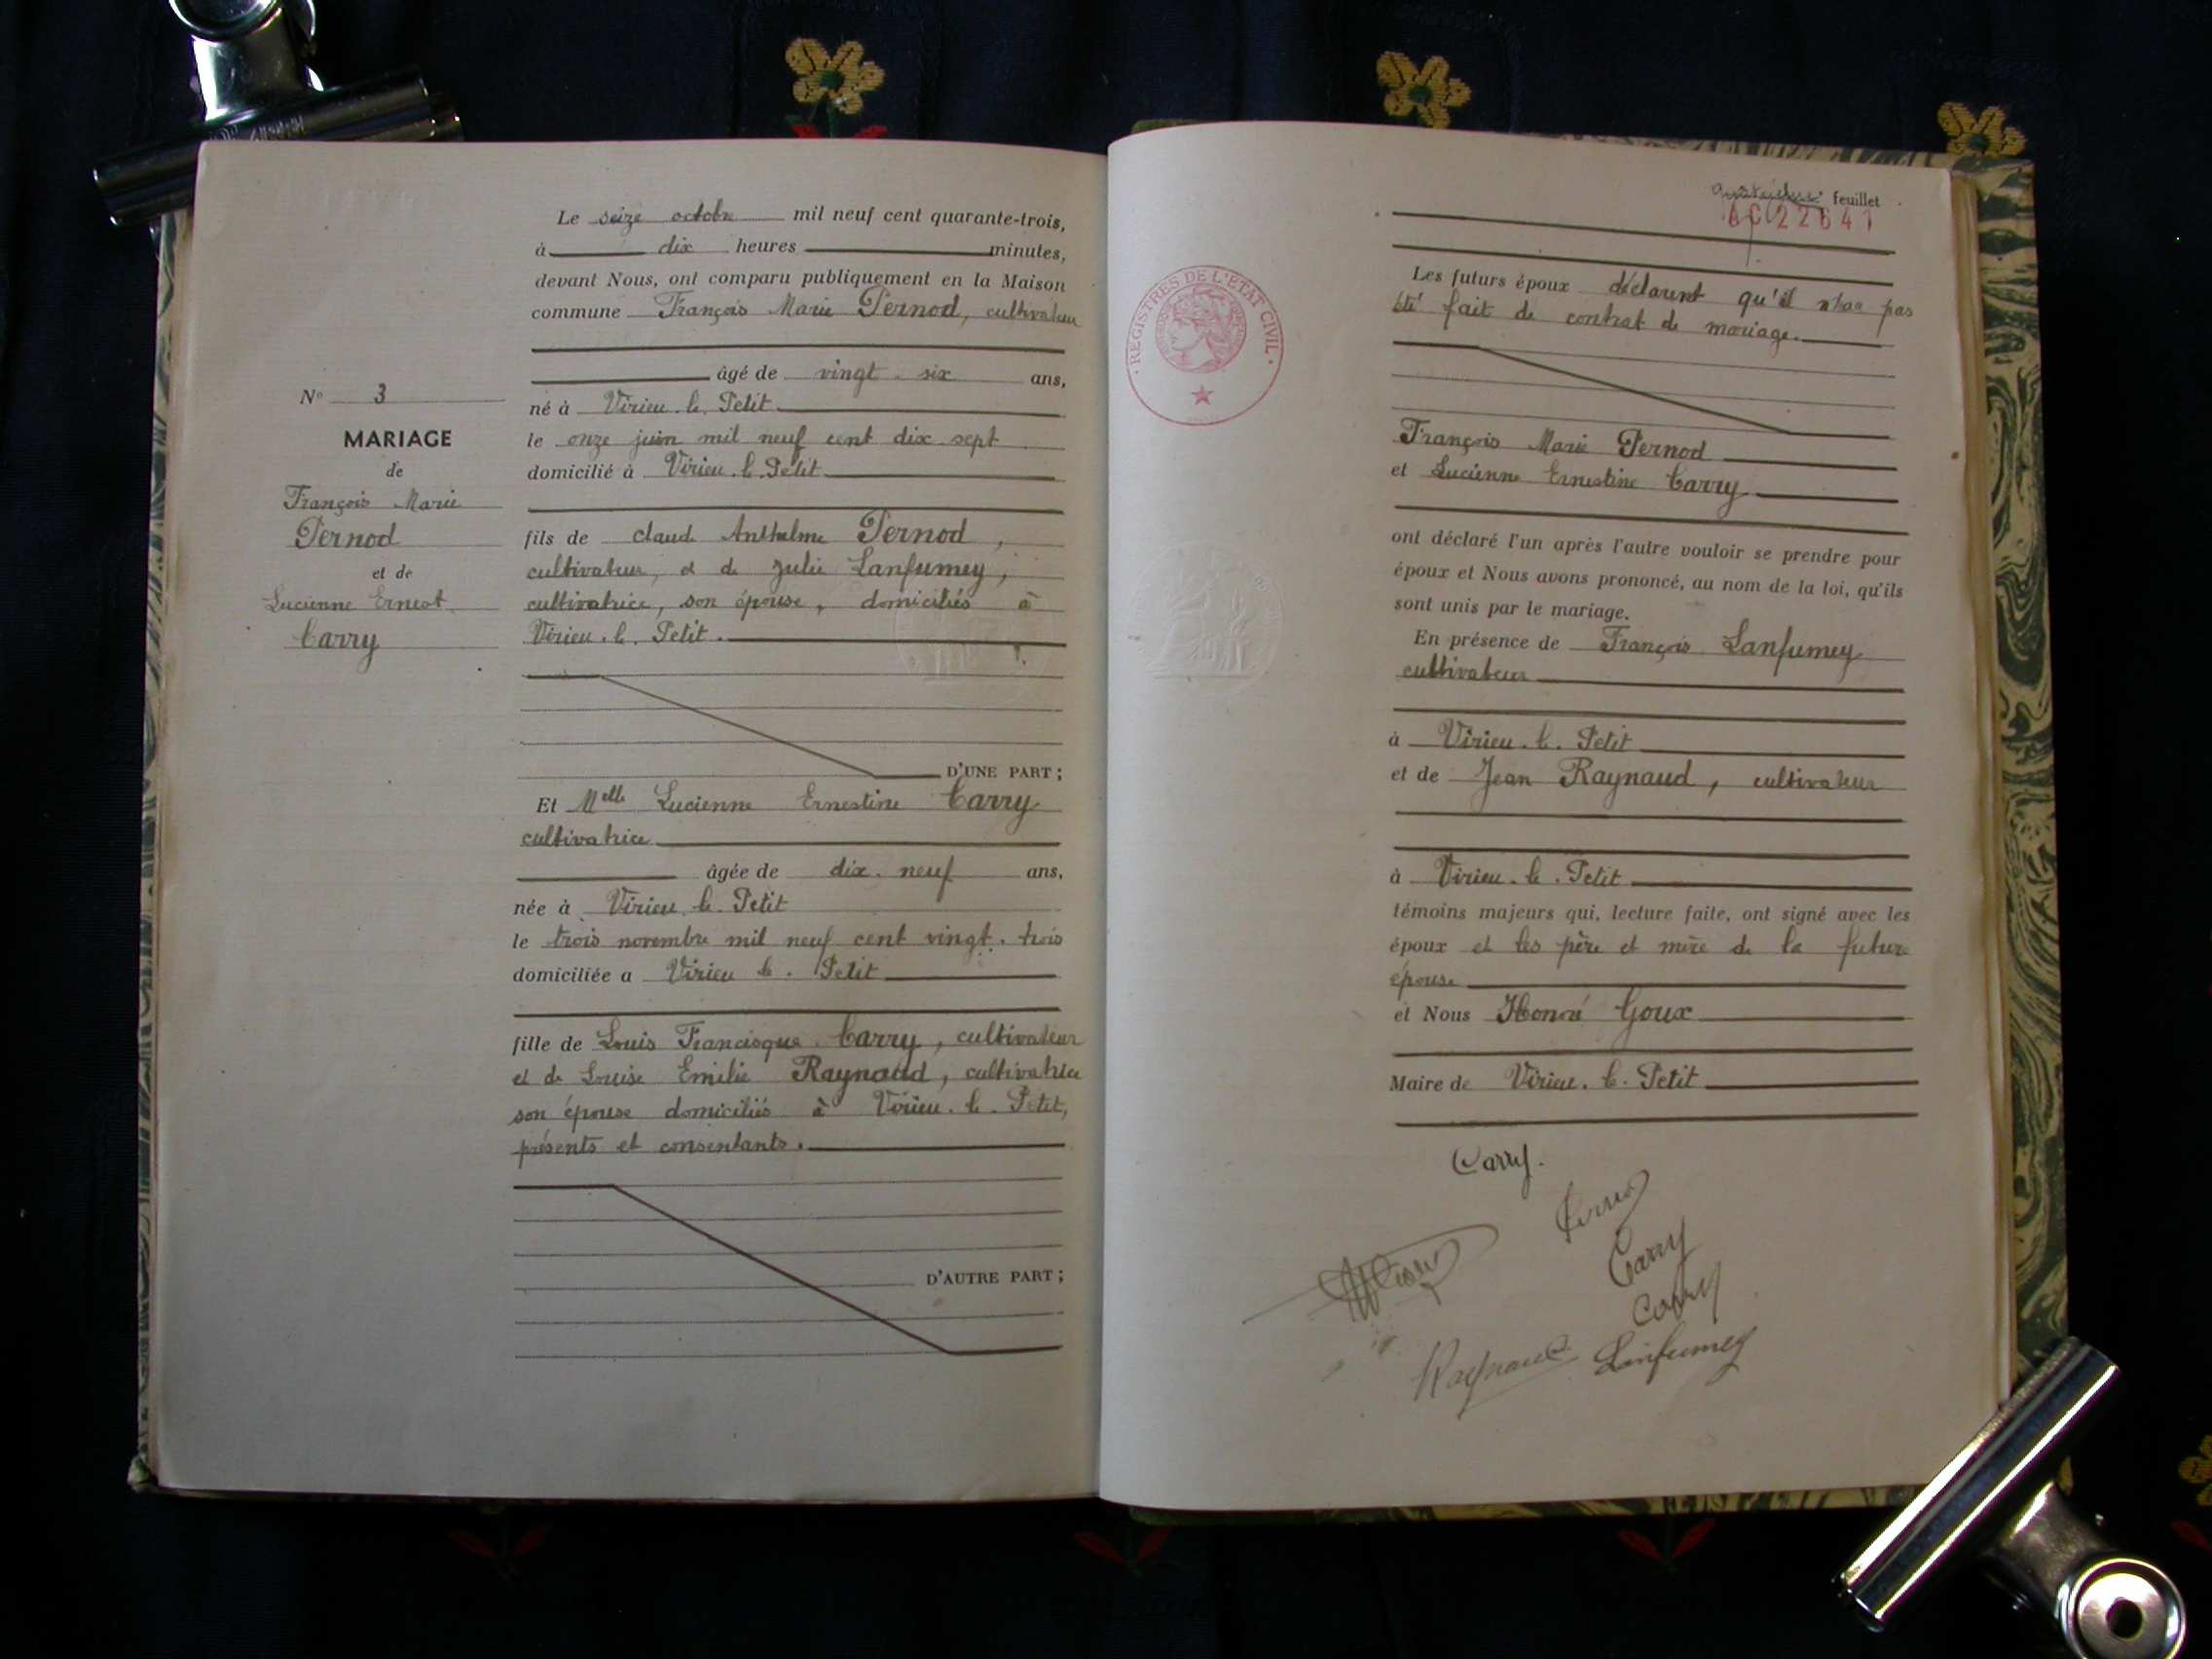 N° 3
MARIAGE
de
François Marie
Pernod
et de
Lucienne Ernest
Carry
Le seize octobre mil neuf cent quarante-trois,
à dix heures minutes,
devant Nous, ont comparu publiquement en la Maison
commune François Marie Pernod, cultivateur
âgé de vingt-six ans,
né à Virieu-le-Petit
le onze juin mil neuf cent dix sept
domicilié à Virieu-le-Petit
fils de Claude Anthelme Pernod,
cultivateur, et de Julie Lanfumey,
cultivatrice, son épouse, domiciliés à
Virieu-le-Petit.
D'UNE PART ;
Et Melle Lucienne Ernestine Carry
cultivatrice
âgée de dix-neuf ans,
née à Virieu-le-Petit
le trois novembre mil neuf cent vingt-trois
domiciliée à Virieu-le-Petit
fille de Louis Francisque Carry, cultivateur
et de Louise Emilie Raynaud, cultivatrice
son épouse domiciliés à Virieu-le-Petit,
présents et consentants.
D'AUTRE PART ;
feuillet
AC 22641
REGISTRES DE L'ETAT CIVIL
Les futurs époux déclarent qu'il n'a pas
été fait de contrat de mariage.
François Marie Pernod
et Lucienne Ernestine Carry
ont déclaré l'un après l'autre vouloir se prendre pour
époux et Nous avons prononcé, au nom de la loi, qu'ils
sont unis par le mariage.
En présence de François Lanfumey
cultivateur
à Virieu-le-Petit
et de Jean Raynaud, cultivateur
à Virieu-le-Petit
témoins majeurs qui, lecture faite, ont signé avec les
époux et les père et mère de la future
épouse
et Nous Honoré Goux
Maire de Virieu-le-Petit
Carry.
Carry
Carry
Raynaud Lanfumey